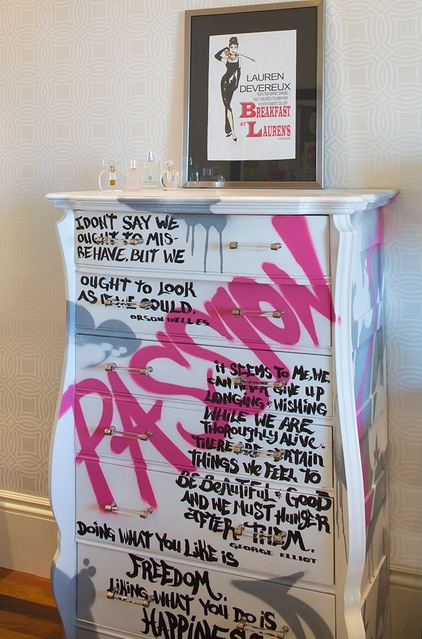 LAUREN
DEVEREUX
BREAKFAST
AT
LAUREN'S
I DON'T SAY WE
OUGHT TO MIS-
BEHAVE, BUT WE
OUGHT TO LOOK
AS IF WE COULD.
ORSON WELLES
PASSION
IT SEEMS TO ME, WE
CAN NEVER GIVE UP
LONGING & WISHING
WHILE WE ARE
THOROUGHLY ALIVE.
THERE ARE CERTAIN
THINGS WE FEEL TO
BE BEAUTIFUL & GOOD
AND WE MUST HUNGER
AFTER THEM.
GEORGE ELLIOT
DOING WHAT YOU LIKE IS
FREEDOM.
LIKING WHAT YOU DO IS
HAPPINESS